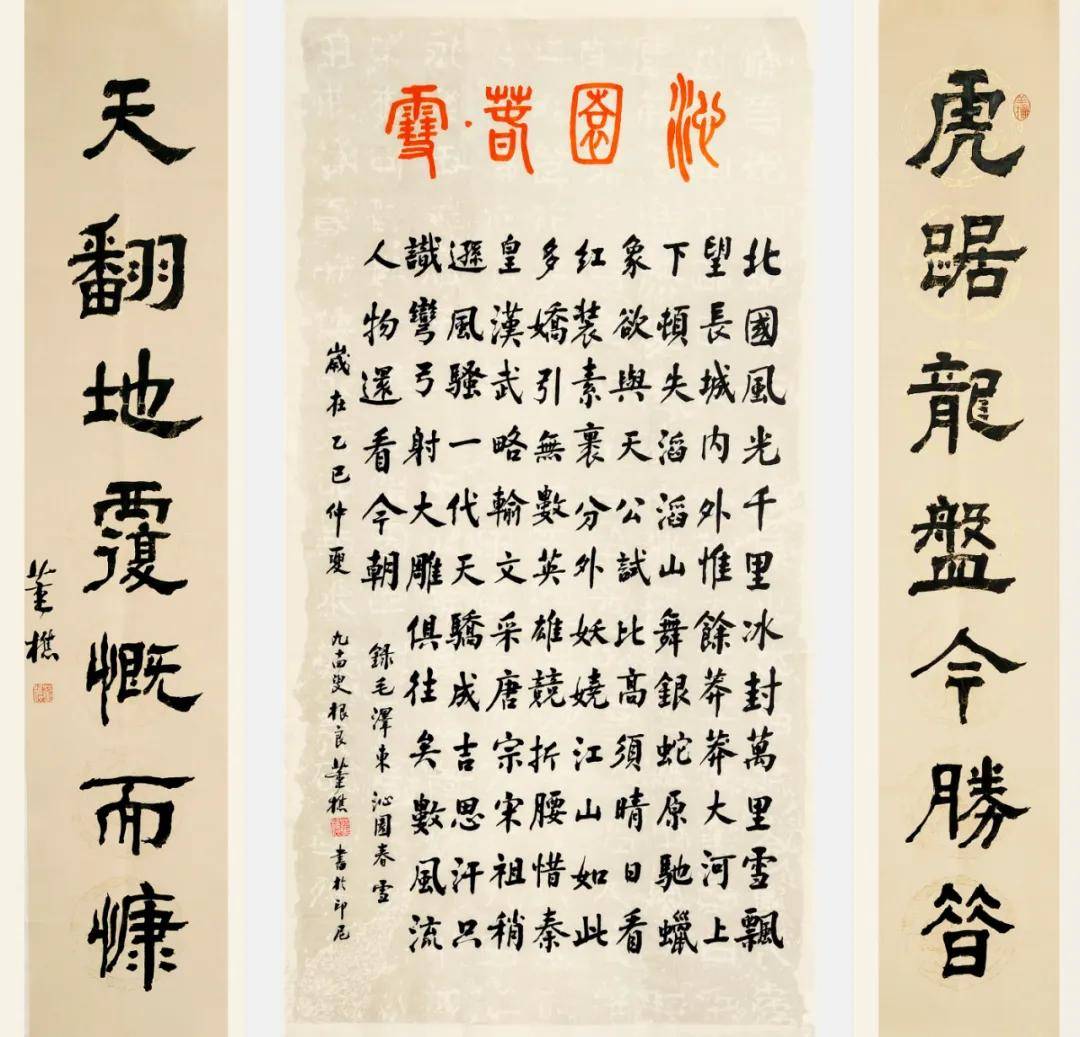 虎踞龍盤今勝昔
沁園春·雪
北國風光千里冰封萬里雪飄
望長城内外惟餘莽莽大河上
下頓失滔滔山舞銀蛇原馳蠟
象欲與天公試比高須晴日看
紅装素裹分外妖嬈江山如此
多嬌引無數英雄競折腰惜秦
皇漢武略輸文采唐宗宋祖稍
遜風騷一代天驕成吉思汗只
識彎弓射大雕俱往矣數風流
人物還看今朝
錄毛澤東沁園春雪
歲在乙巳仲夏 九叟根良董樵書於印尼
天翻地覆慨而慷
董樵